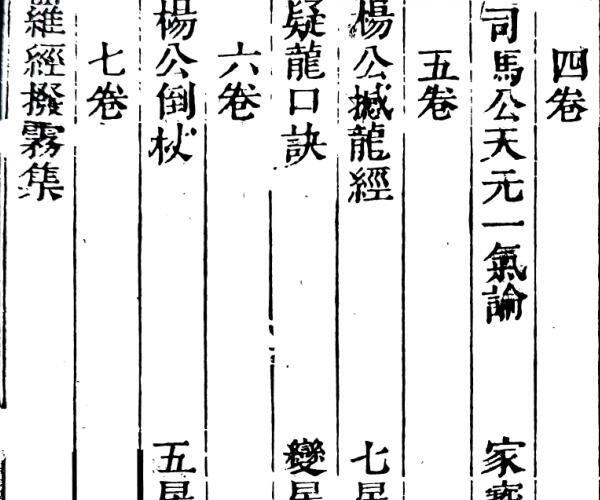 四卷
司馬公天元一氣論 家寶
五卷
楊公撼龍經 七星
疑龍口訣 變星
六卷
楊公倒杖 五星
七卷
羅經撥霧集